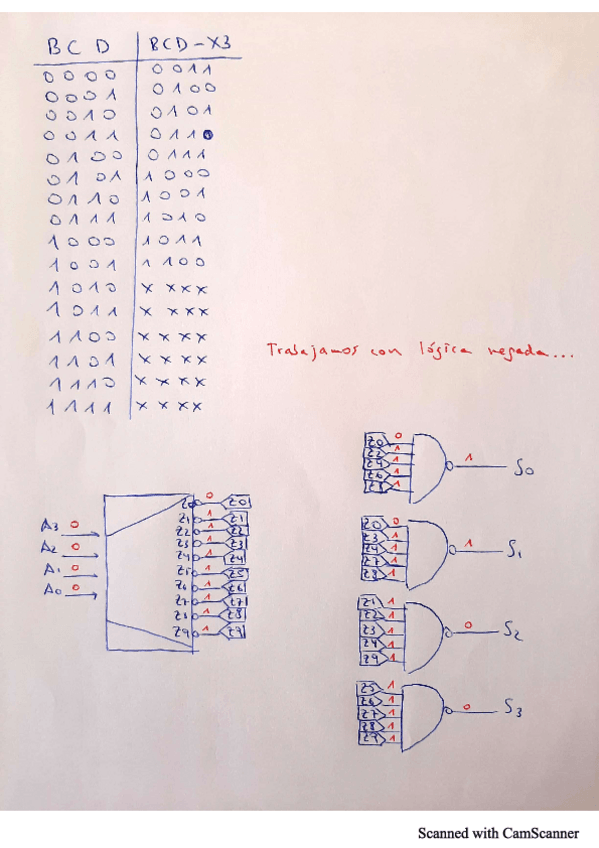 BCD BCD-X3
0000 0011
0001 0100
0010 0101
0011 0110
0100 0111
0101 1000
0110 1001
0111 1010
1000 1011
1001 1100
1010 xxxx
1011 xxxx
1100 xxxx
1101 xxxx
1110 xxxx
1111 xxxx
Trabajamos con lógica negada...
A3 0
A2 0
A1 0
A0 0
Z0 0 Z0
Z1 1 Z1
Z2 1 Z2
Z3 1 Z3
Z4 1 Z4
Z5 1 Z5
Z6 1 Z6
Z7 1 Z7
Z8 1 Z8
Z9 1 Z9
Z0 0
Z2 1
Z4 1
Z6 1
Z8 1
1 S0
Z0 0
Z3 1
Z4 1
Z7 1
Z8 1
1 S1
Z1 1
Z2 1
Z3 1
Z4 1
Z9 1
0 S2
Z5 1
Z6 1
Z7 1
Z8 1
Z9 1
0 S3
Scanned with CamScanner